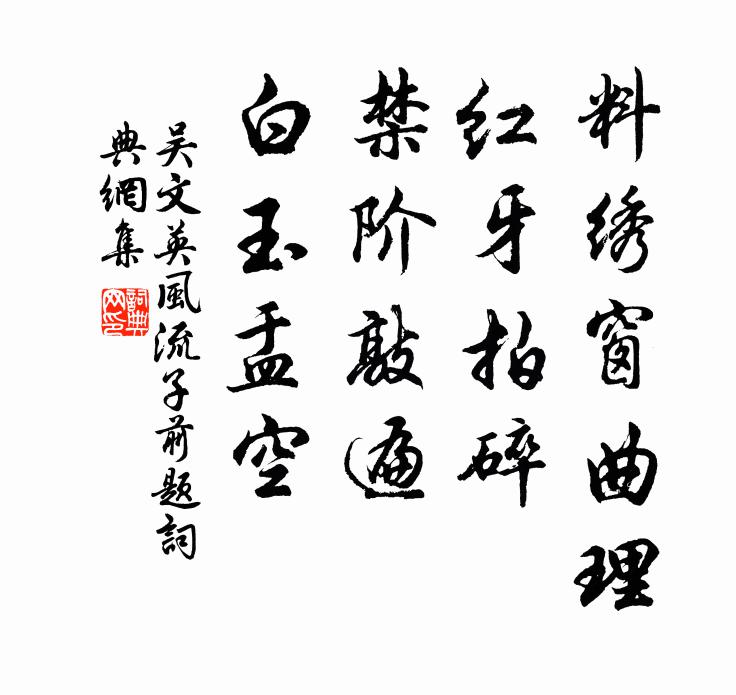 料绣窗曲理
红牙拍碎
禁阶敲遍
白玉盂空
吴文英風流子前题詞
典網集
詞典
网印